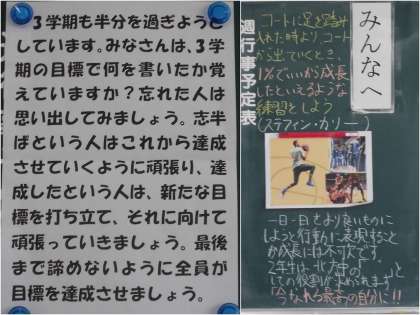 3学期も半分を過ぎようと
しています。みなさんは、3学
期の目標で何を書いたか覚
えていますか？忘れた人は
思い出してみましょう。志半
ばという人はこれから達成
させていくように頑張り、達
成したという人は、新たな目
標を打ち立て、それに向けて
頑張っていきましょう。最後
まで諦めないように全員が
目標を達成させましょう。
週行事予定表
みんなへ
コートに足を踏み
入れた時より、コート
から出ていくとき、
1%でいいから成長
したといえるような
練習をしよう
(ステフィン・カリー)
一日一日をより良いものに
しようと行動に表現すること
が成長には不可欠です。
2年生は「北大中の
としての役割が求められます
「今なれる最高の自分に!!